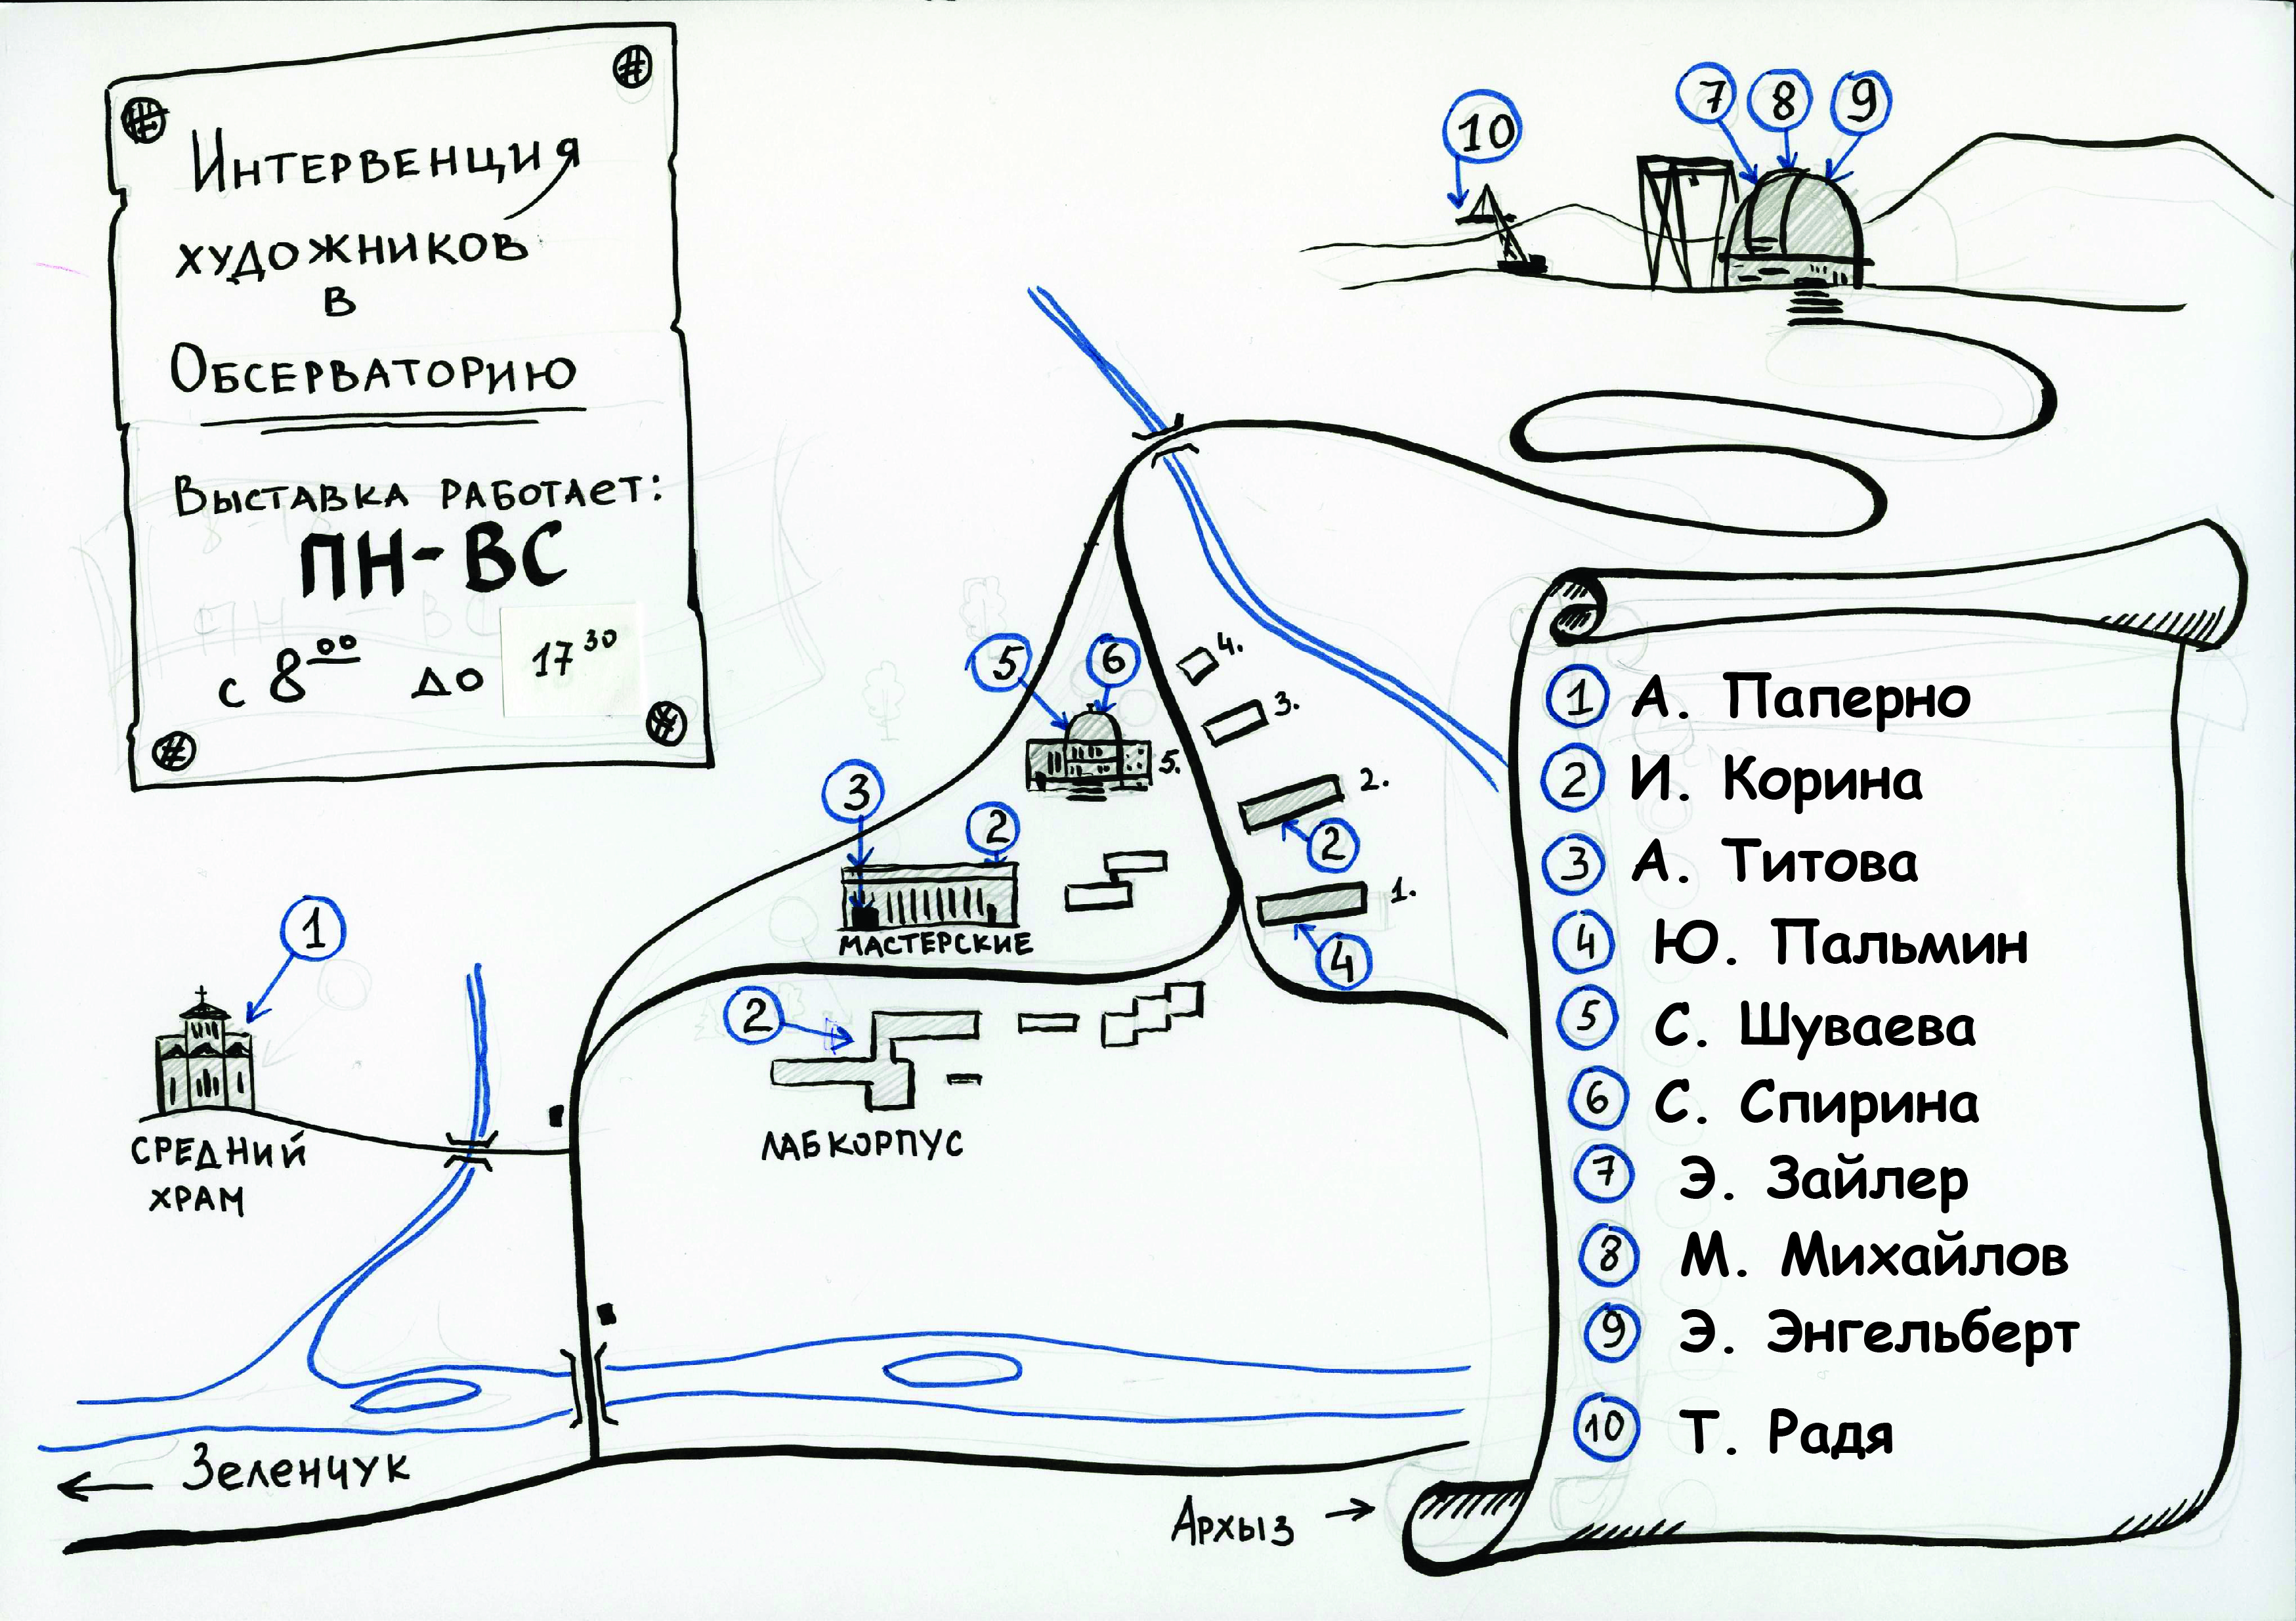 Интервенция
художников
в
Обсерваторию
Выставка работает:
ПН-ВС
с 8⁰⁰ до 17³⁰
10
7 8 9
5 6
4.
3.
5.
2.
3
2
2
1.
МАСТЕРСКИЕ
4
1
2
ЛАБКОРПУС
СРЕДНИЙ
ХРАМ
← Зеленчук
Архыз →
1 А. Паперно
2 И. Корина
3 А. Титова
4 Ю. Пальмин
5 С. Шуваева
6 С. Спирина
7 Э. Зайлер
8 М. Михайлов
9 Э. Энгельберт
10 Т. Радя